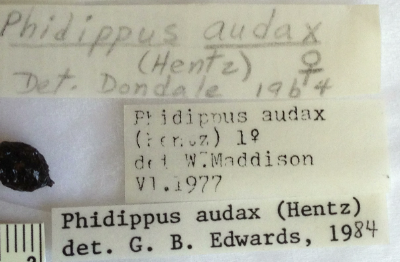 Phidippus audax
(Hentz) ♀
Det. Dondale 1964
Phidippus audax
(Hentz) 1♀
det W. Maddison
VI.1977
Phidippus audax (Hentz)
det. G. B. Edwards, 1984